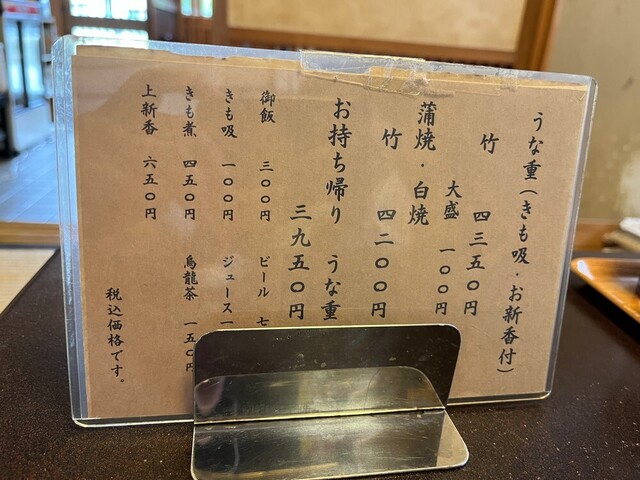 うな重(きも吸・お新香付)
竹 四三五〇円
大盛 一〇〇円
蒲焼・白焼
竹 四二〇〇円
お持ち帰り うな重
三九五〇円
御飯 三〇〇円
ビール 七
きも吸 一〇〇円
ジュース 一
きも煮 四五〇円
烏龍茶 一五〇円
上新香 六五〇円
税込価格です。